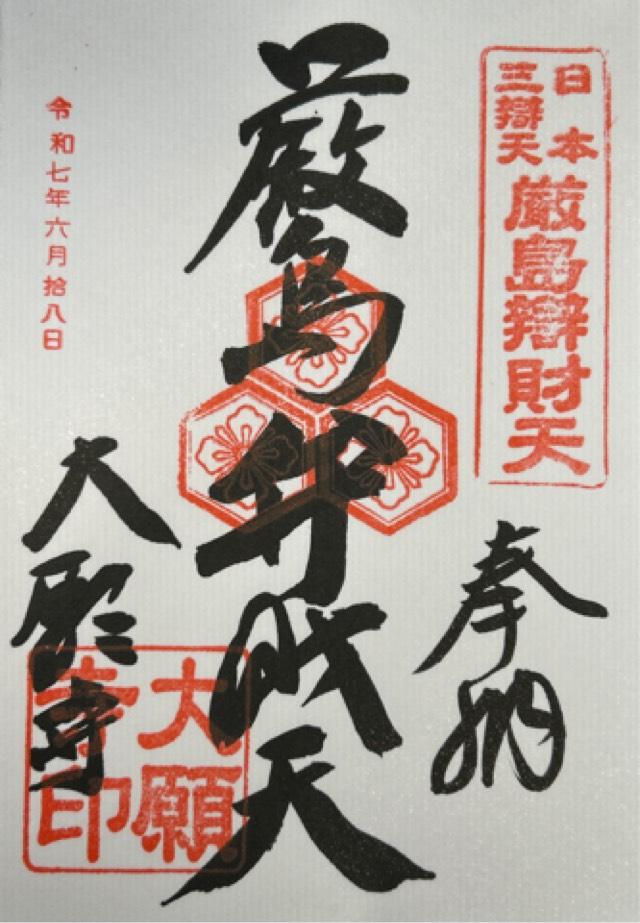 日本
三辯天
厳島辯財天
奉納
厳島弁財天
令和七年六月拾八日
大願寺
大願
寺印